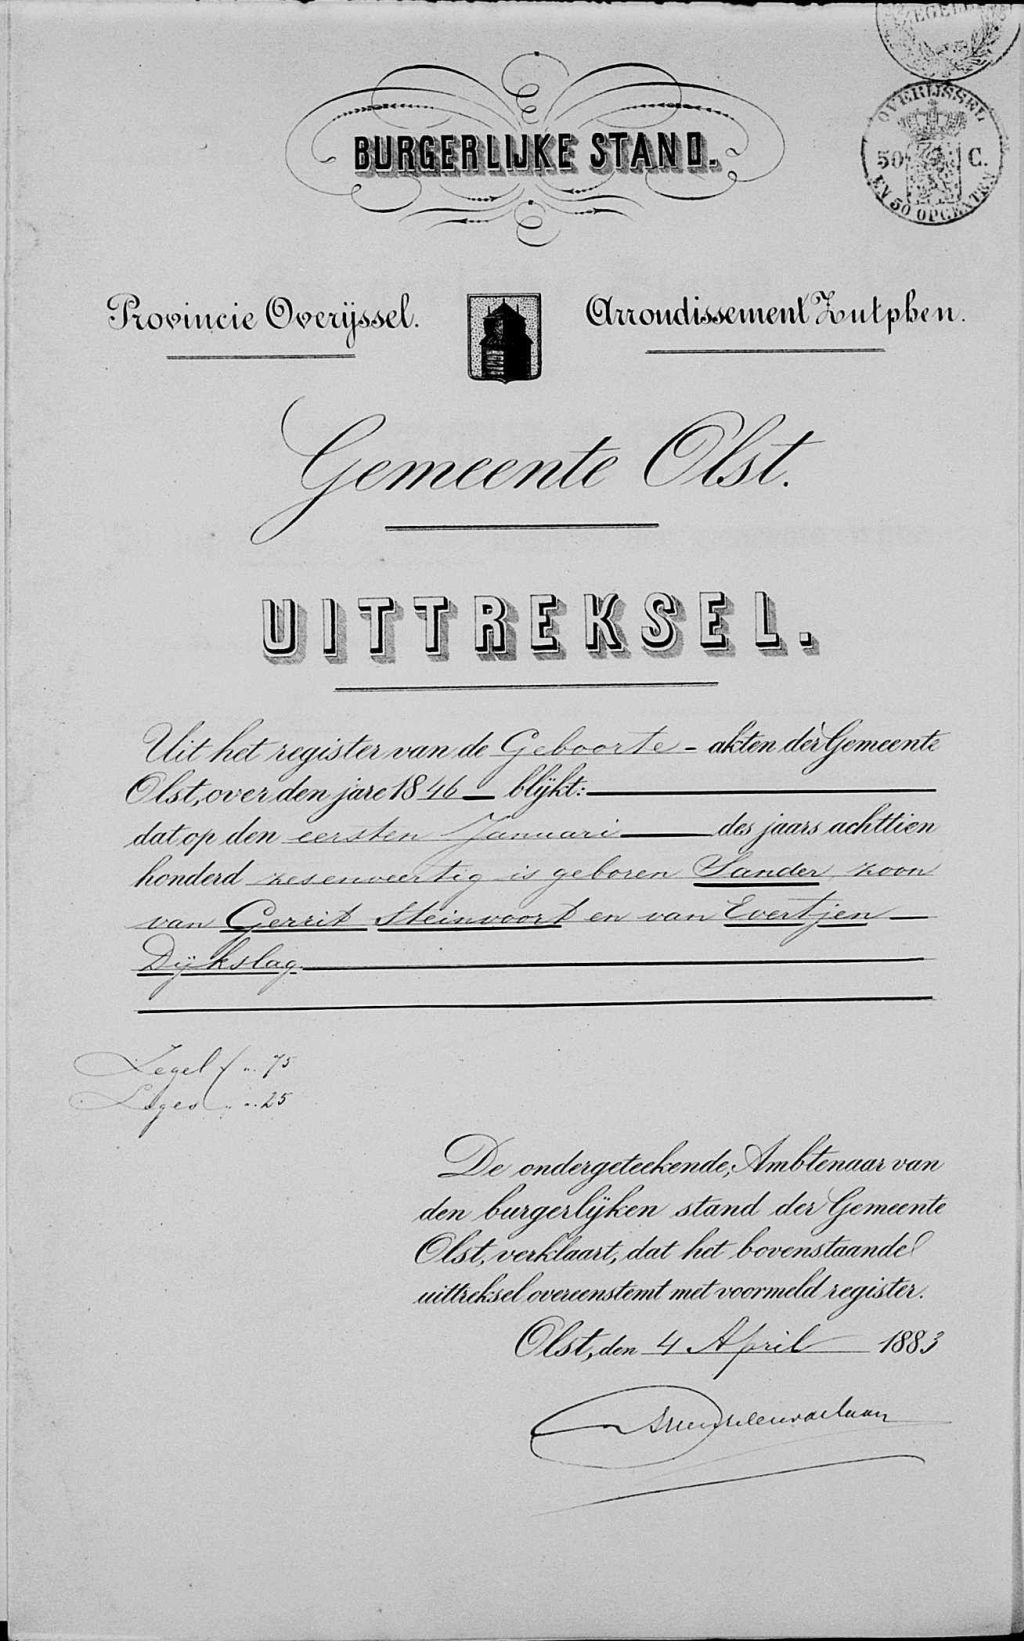 ZEGEL
OVERIJSSEL
50 C.
EN 50 OPCENTEN
BURGERLIJKE STAND.
Provincie Overijssel.
Arrondissement Zutphen.
Gemeente Olst.
UITTREKSEL.
Uit het register van de Geboorte - akten der Gemeente
Olst, over den jare 1846 blijkt:
dat op den eersten Januari des jaars achttien
honderd zesenveertig is geboren Sander zoon
van Gerrit Steinvoort en van Evertjen
Dijkslag.
Zegel f „ 75
Leges „ „ 25
De ondergeteekende, Ambtenaar van
den burgerlijken stand der Gemeente
Olst, verklaart, dat het bovenstaande
uittreksel overeenstemt met voormeld register.
Olst, den 4 April 1883